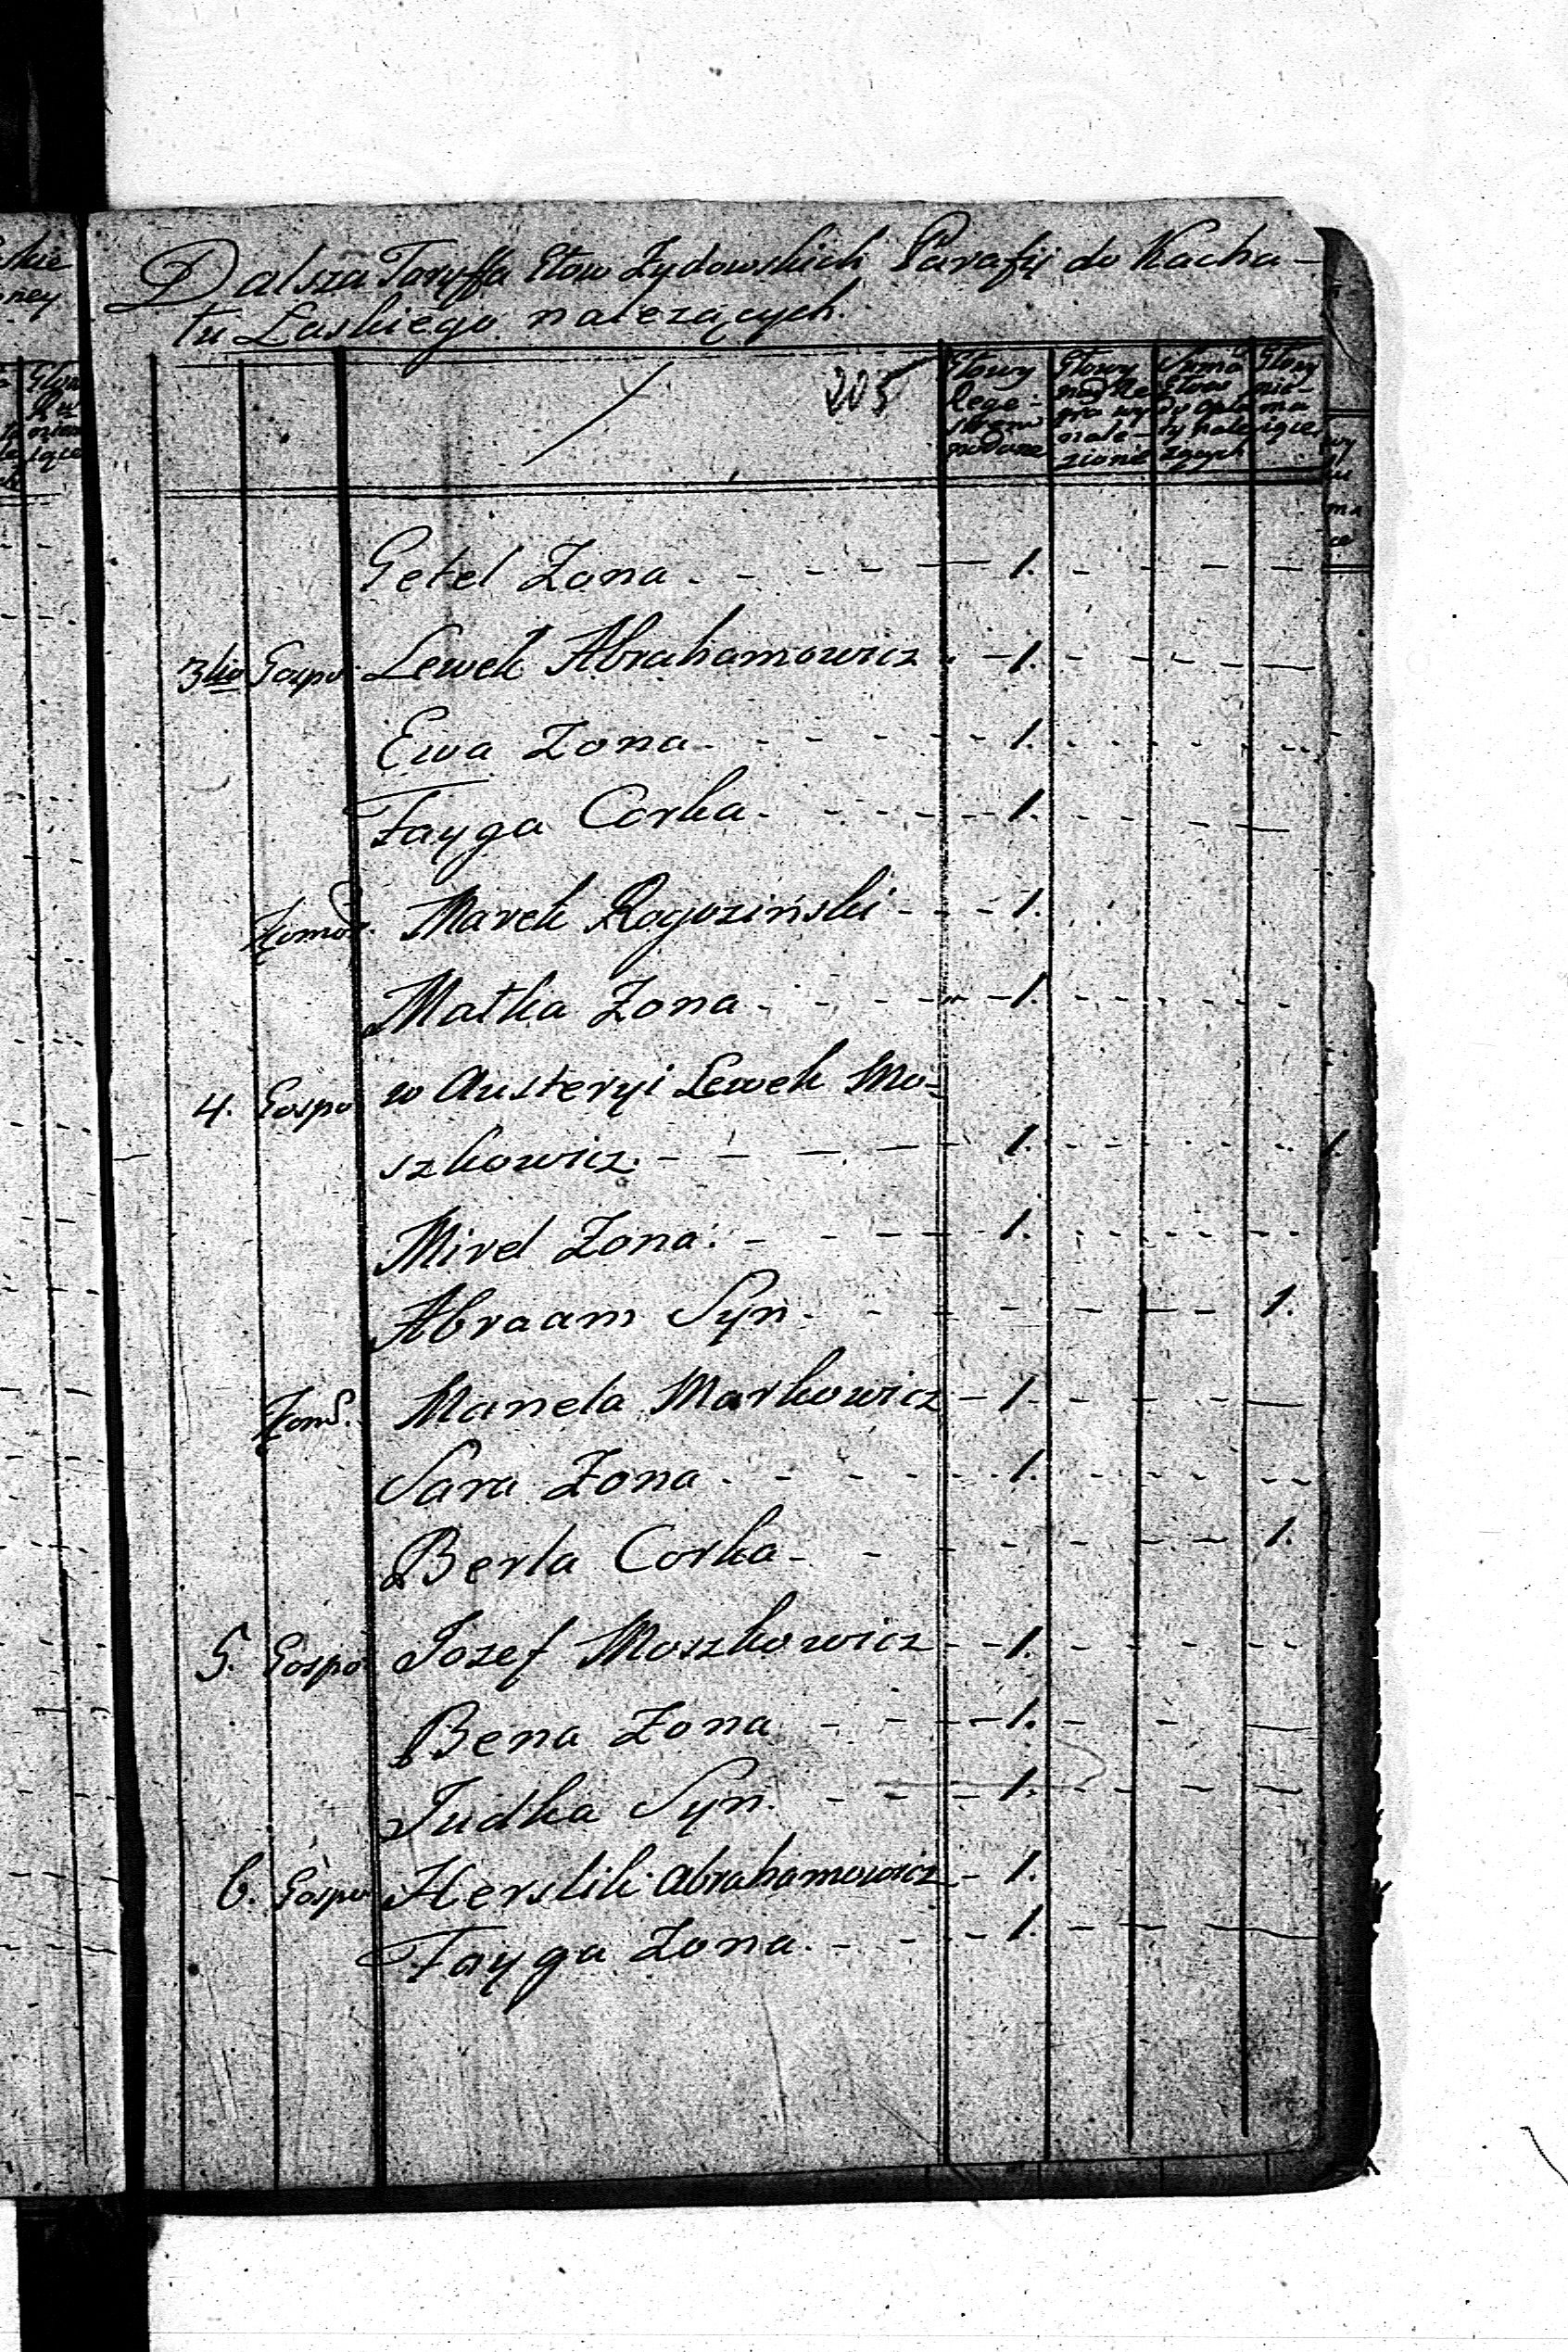 Dalsza Taryffa Głow Zydowskich Parafij do Kacha-
łu Łaskiego należących.
205
Głowy lege: strem podane
Głowy nad Re gra wy nale- zione
Suma Głow do opła ty należ- ących
Głowy nie- ma iące
Getel Zona - - - - 1. - - - -
3tio Gospo Lewek Abrahamowicz - 1. - - - -
Ewa Zona - - - - 1. - - - -
Fayga Corka - - - - 1. - - - -
Komor. Marek Rogoziński - - - 1.
Matka Zona - - - - 1. - - - -
4. Gospo w Austeryi Lewek Mo-
szkowicz. - - - - 1. - - - -
Mirel Zona. - - - - 1. - - - -
Abraam Syn. - - - - - - - 1.
Kom. Manela Markowicz - 1. - - - -
Sara Zona - - - - 1. - - - -
Berla Corka - - - - - - - 1.
5. Gospo Jozef Moszkowicz - - 1. - - - -
Bena Zona - - - - 1. - - -
Judka Syn. - - - - 1. - - - -
6. Gospo Herslik Abrahamowicz - 1.
Fayga Zona. - - - - 1. - - -